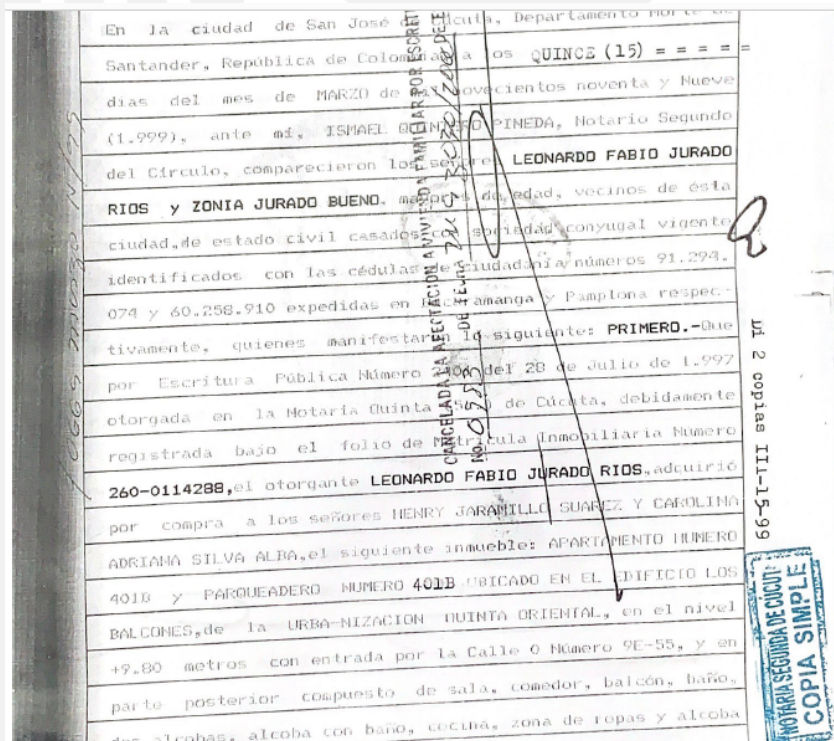 En la ciudad de San José de Cúcuta, Departamento Norte de
Santander, República de Colombia a os QUINCE (15) = = = = =
dias del mes de MARZO de mil novecientos noventa y Nueve
(1.999), ante mí, ISMAEL QUINTERO PINEDA, Notario Segundo
del Círculo, comparecieron los señores LEONARDO FABIO JURADO
RIOS y ZONIA JURADO BUENO, mayores de edad, vecinos de ésta
ciudad,de estado civil casados con sociedad conyugal vigente
identificados con las cédulas de ciudadanía números 91.294.
074 y 60.258.910 expedidas en Bucaramanga y Pamplona respec-
tivamente, quienes manifestaron lo siguiente: PRIMERO.-Que
por Escritura Pública Número del 28 de Julio de 1.997
otorgada en la Notaria Quinta de Cúcuta, debidamente
registrada bajo el folio de Matrícula Inmobiliaria Número
260-0114288,el otorgante LEONARDO FABIO JURADO RIOS,adquirió
por compra a los señores HENRY JARAMILLO SUAREZ Y CAROLINA
ADRIANA SILVA ALBA,el siguiente inmueble: APARTAMENTO NUMERO
401B y PARQUEADERO NUMERO 401B UBICADO EN EL EDIFICIO LOS
BALCONES,de la URBA-NIZACION QUINTA ORIENTAL, en el nivel
+9.80 metros con entrada por la Calle 0 Número 9E-55, y en
parte posterior compuesto de sala, comedor, balcón, baño,
dos alcobas, alcoba con baño, cocina, zona de ropas y alcoba
CANCELADA LA AFECTACION A VIVIENDA FAMILIAR POR ESCRIT
No. 0953 DE FECHA
2 copias III-15-99
NOTARIA SEGUNDA DE CÚCUT
COPIA SIMPLE